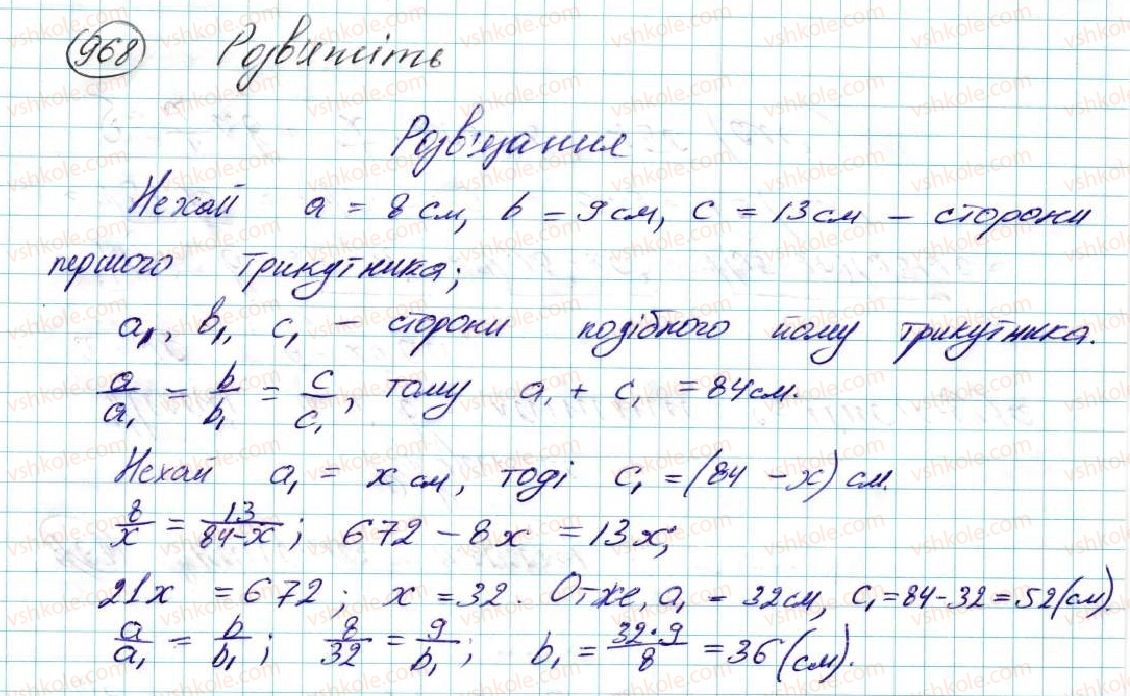 968 Розв'яжіть
Розв'язання
Нехай a = 8 см, b = 9 см, c = 13 см – сторони
першого трикутника;
a₁, b₁, c₁ – сторони подібного йому трикутника.
a/a₁ = b/b₁ = c/c₁, тому a₁ + c₁ = 84 см.
Нехай a₁ = x см, тоді c₁ = (84 – x) см.
8/x = 13/(84–x); 672 – 8x = 13x;
21x = 672; x = 32. Отже, a₁ = 32 см, c₁ = 84 – 32 = 52 (см).
a/a₁ = b/b₁; 8/32 = 9/b₁; b₁ = (32·9)/8 = 36 (см).